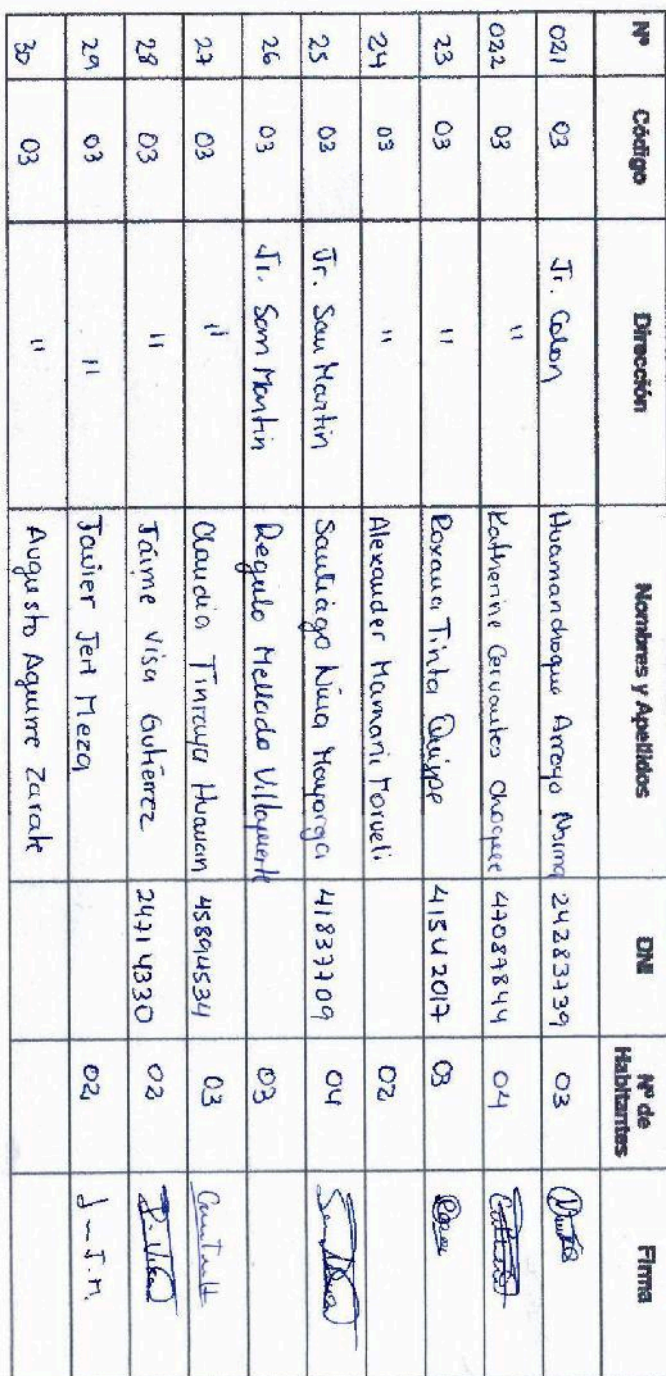 Nº Código Dirección Nombres y Apellidos DNI Nº de Habitantes Firma
021 03 Jr. Colon Huamanchoque Arroyo Norma 24283739 03
022 03 " Katherine Cervantes Choquee 47087844 04
23 03 " Roxana Tinta Quispe 41542017 03
24 03 " Alexander Mamani Torveli 02
25 03 Jr. San Martin Santiago Nina Mayorga 41837709 04
26 03 Jr. San Martin Regulo Mellado Villafuerte 03
27 03 " Claudia Tinraya Huaman 45894534 03
28 03 " Jaime Visa Gutiérrez 24714330 02
29 03 " Javier Jeri Meza 02 J-J.M.
30 03 " Augusto Aguirre Zarate